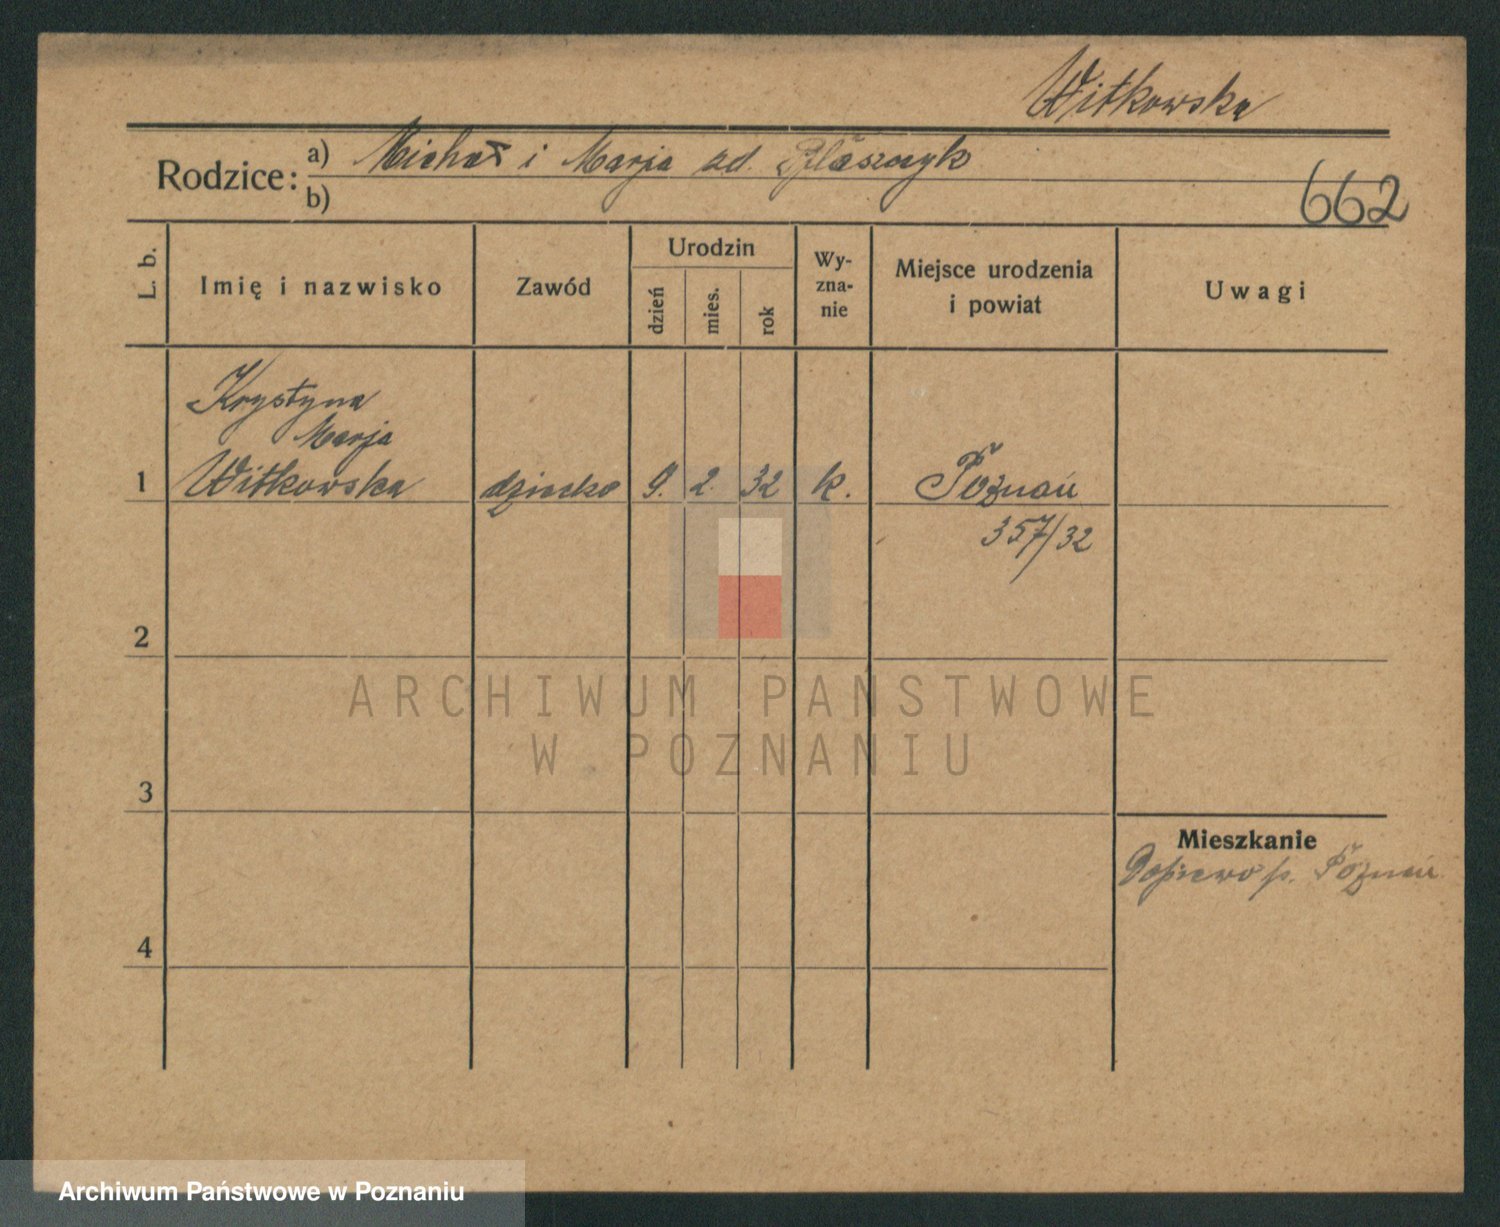 Witkowska
Rodzice: a) Michał i Marja zd.
b)
662
L. b.
Imię i nazwisko
Zawód
Urodzin
dzień
mies.
rok
Wy-
zna-
nie
Miejsce urodzenia
i powiat
Uwagi
Krystyna
Marja
1 Witkowska dziecko 9. 2. 32 k. Poznań
357/32
2
ARCHIWUM PAŃSTWOWE
W POZNANIU
3
Mieszkanie
Dopiewo p. Poznań
4
Archiwum Państwowe w Poznaniu